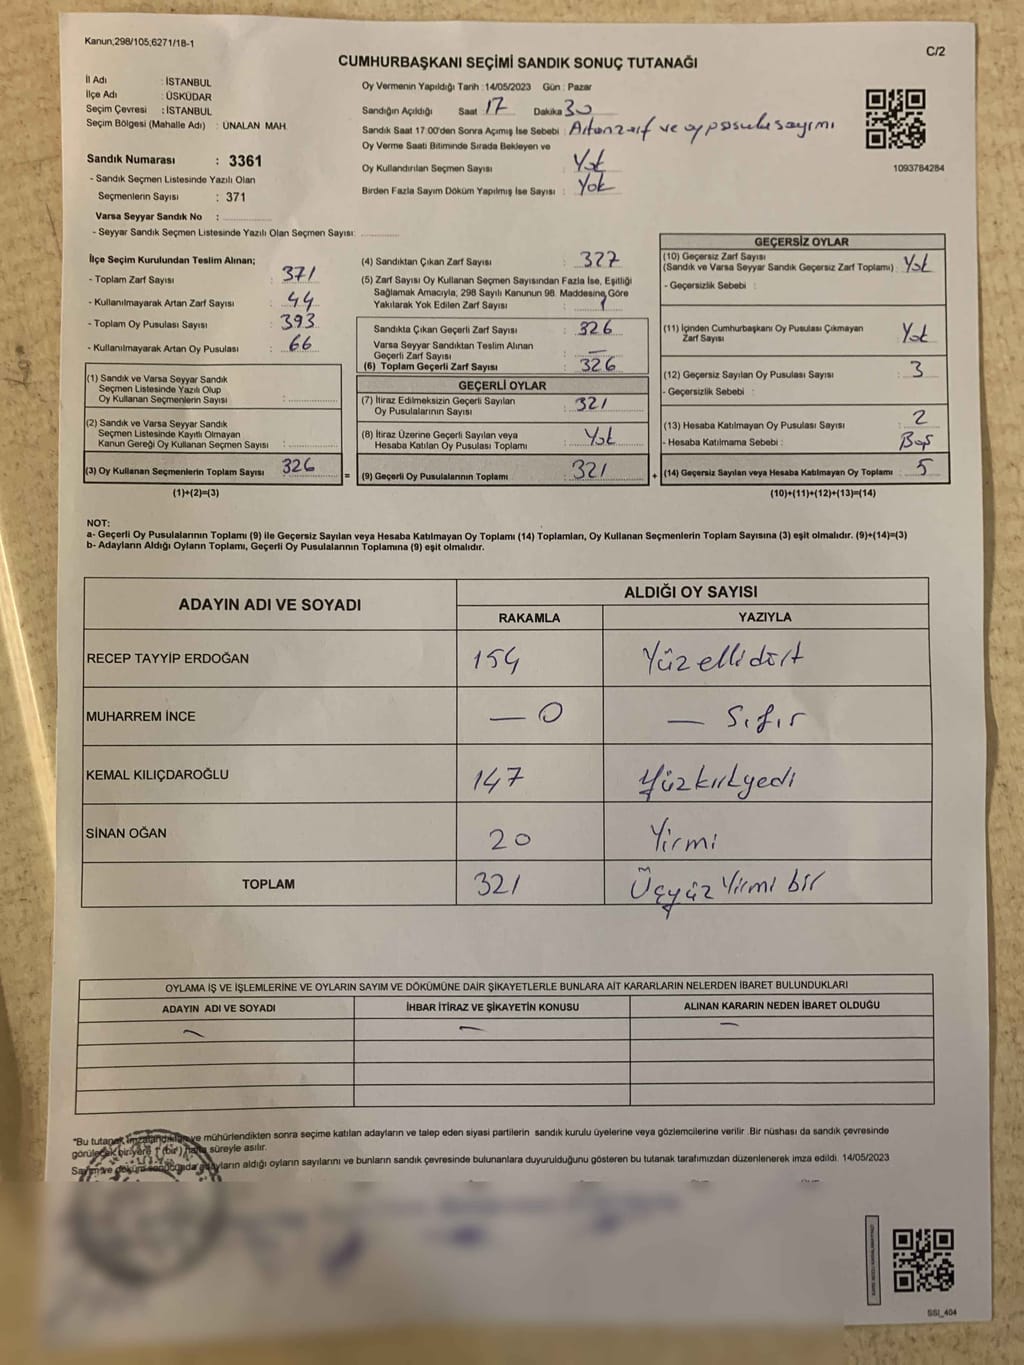 Kanun;298/105;6271/18-1
C/2
CUMHURBAŞKANI SEÇİMİ SANDIK SONUÇ TUTANAĞI
İl Adı : İSTANBUL
İlçe Adı : ÜSKÜDAR
Seçim Çevresi : İSTANBUL
Seçim Bölgesi (Mahalle Adı) : ÜNALAN MAH.
Sandık Numarası : 3361
- Sandık Seçmen Listesinde Yazılı Olan
Seçmenlerin Sayısı : 371
Varsa Seyyar Sandık No :
- Seyyar Sandık Seçmen Listesinde Yazılı Olan Seçmen Sayısı:
Oy Vermenin Yapıldığı Tarih : 14/05/2023 Gün : Pazar
Sandığın Açıldığı Saat 17 Dakika 30
Sandık Saat 17:00'den Sonra Açımış İse Sebebi : Artan zarf ve oy pusulası sayımı
Oy Verme Saati Bitiminde Sırada Bekleyen ve
Oy Kullandırılan Seçmen Sayısı : Yok
Birden Fazla Sayım Döküm Yapılmış İse Sayısı : Yok
1093784284
İlçe Seçim Kurulundan Teslim Alınan;
- Toplam Zarf Sayısı : 371
- Kullanılmayarak Artan Zarf Sayısı : 44
- Toplam Oy Pusulası Sayısı : 393
- Kullanılmayarak Artan Oy Pusulası : 66
(1) Sandık ve Varsa Seyyar Sandık
Seçmen Listesinde Yazılı Olup
Oy Kullanan Seçmenlerin Sayısı :
(2) Sandık ve Varsa Seyyar Sandık
Seçmen Listesinde Kayıtlı Olmayan
Kanun Gereği Oy Kullanan Seçmen Sayısı :
(3) Oy Kullanan Seçmenlerin Toplam Sayısı 326
=
(1)+(2)=(3)
(4) Sandıktan Çıkan Zarf Sayısı : 327
(5) Zarf Sayısı Oy Kullanan Seçmen Sayısından Fazla İse, Eşitliği
Sağlamak Amacıyla; 298 Sayılı Kanunun 98. Maddesine Göre
Yakılarak Yok Edilen Zarf Sayısı : 1
Sandıkta Çıkan Geçerli Zarf Sayısı : 326
Varsa Seyyar Sandıktan Teslim Alınan
Geçerli Zarf Sayısı : —
(6) Toplam Geçerli Zarf Sayısı : 326
GEÇERLİ OYLAR
(7) İtiraz Edilmeksizin Geçerli Sayılan
Oy Pusulalarının Sayısı : 321
(8) İtiraz Üzerine Geçerli Sayılan veya
Hesaba Katılan Oy Pusulası Toplamı : Yok
(9) Geçerli Oy Pusulalarının Toplamı : 321
+
GEÇERSİZ OYLAR
(10) Geçersiz Zarf Sayısı
(Sandık ve Varsa Seyyar Sandık Geçersiz Zarf Toplamı) : Yok
- Geçersizlik Sebebi :
(11) İçinden Cumhurbaşkanı Oy Pusulası Çıkmayan
Zarf Sayısı : Yok
(12) Geçersiz Sayılan Oy Pusulası Sayısı : 3
- Geçersizlik Sebebi :
(13) Hesaba Katılmayan Oy Pusulası Sayısı : 2
- Hesaba Katılmama Sebebi : Boş
(14) Geçersiz Sayılan veya Hesaba Katılmayan Oy Toplamı : 5
(10)+(11)+(12)+(13)=(14)
NOT:
a- Geçerli Oy Pusulalarının Toplamı (9) ile Geçersiz Sayılan veya Hesaba Katılmayan Oy Toplamı (14) Toplamları, Oy Kullanan Seçmenlerin Toplam Sayısına (3) eşit olmalıdır. (9)+(14)=(3)
b- Adayların Aldığı Oyların Toplamı, Geçerli Oy Pusulalarının Toplamına (9) eşit olmalıdır.
ADAYIN ADI VE SOYADI
ALDIĞI OY SAYISI
RAKAMLA YAZIYLA
RECEP TAYYİP ERDOĞAN 154 Yüzellidört
MUHARREM İNCE — 0 — Sıfır
KEMAL KILIÇDAROĞLU 147 Yüzkırkyedi
SİNAN OĞAN 20 Yirmi
TOPLAM 321 Üçyüz Yirmi bir
OYLAMA İŞ VE İŞLEMLERİNE VE OYLARIN SAYIM VE DÖKÜMÜNE DAİR ŞİKAYETLERLE BUNLARA AİT KARARLARIN NELERDEN İBARET BULUNDUKLARI
ADAYIN ADI VE SOYADI İHBAR İTİRAZ VE ŞİKAYETİN KONUSU ALINAN KARARIN NEDEN İBARET OLDUĞU
— — —
*Bu tutanak imzalandıktan ve mühürlendikten sonra seçime katılan adayların ve talep eden siyasi partilerin sandık kurulu üyelerine veya gözlemcilerine verilir. Bir nüshası da sandık çevresinde
görülecek bir yere 1 (bir) hafta süreyle asılır.
Sayım ve döküm sonucunda adayların aldığı oyların sayılarını ve bunların sandık çevresinde bulunanlara duyurulduğunu gösteren bu tutanak tarafımızdan düzenlenerek imza edildi. 14/05/2023
SSI_404